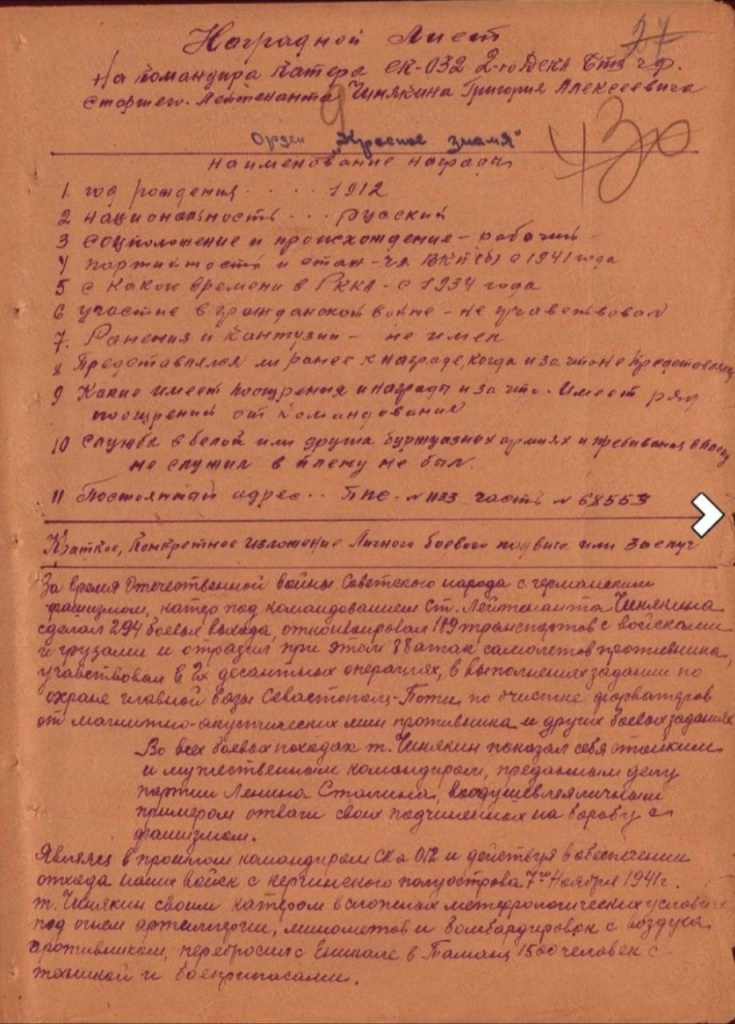 27
Наградной Лист
На командира катера СК-032 2-го ДСКА БТЗ ч.ф.
Старшего Лейтенанта Чинякина Григория Алексеевича
Орден "Красное знамя"
430
наименование награды
1. год рождения . . . . 1912
2 национальность . . . русский
3 соцположение и происхождение - рабочий
4 партийность и стаж - чл ВКП(б) с 1941 года
5 с какого времени в РККА - с 1934 года
6 участие в гражданской войне - не участвовал
7. Ранения и контузии - не имел
8 Представлялся ли ранее к награде, когда и за что не представлялся
9 Какие имеет поощрения и награды и за что. Имеет ряд
поощрений от командования
10 Служба в белой или других буржуазных армиях и пребывания в плену
не служил в плену не был.
11 Постоянный адрес . . ППС - № 1133 часть № 68553
Краткое, конкретное изложение личного боевого подвига или заслуг
За время Отечественной войны Советского народа с германским
фашизмом, катер под командованием Ст. Лейтенанта Чинякина
сделал 294 боевых выхода, отконвоировал 189 транспортов с войсками
и грузами и отразил при этом 38 атак самолетов противника,
участвовал в 2х десантных операциях, в выполнениях задании по
охране главной базы Севастополь-Поти, по очистке фарватеров
от магнитно-акустических мин противника и других боевых заданиях
Во всех боевых походах т. Чинякин показал себя стойким
и мужественным командиром, преданным делу
партии Ленина Сталина, воодушевляя личным
примером отваги своих подчиненных на борьбу с
фашизмом.
Являясь в прошлом командиром СКа 012 и действуя в обеспечении
отхода наших войск с керченского полуострова 7го Ноября 1941г.
т. Чинякин своим катером в сложных метеорологических условиях
под огнем артиллерии, минометов и бомбардировок с воздуха
противником, перебросил с Еникале в Тамань 1500 человек с
техникой и боеприпасами.